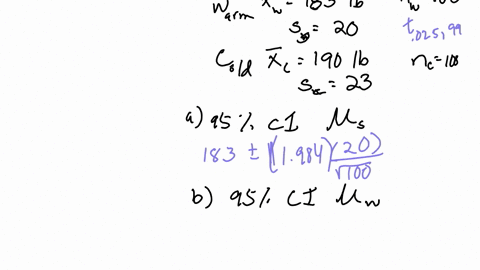 Warm x̄w = 183 lb
s = 20 t.025, 99
Cold x̄c = 190 lb nc = 100
s = 23
a) 95% CI μs
183 ± (1.984)(20)/√100
b) 95% CI μw